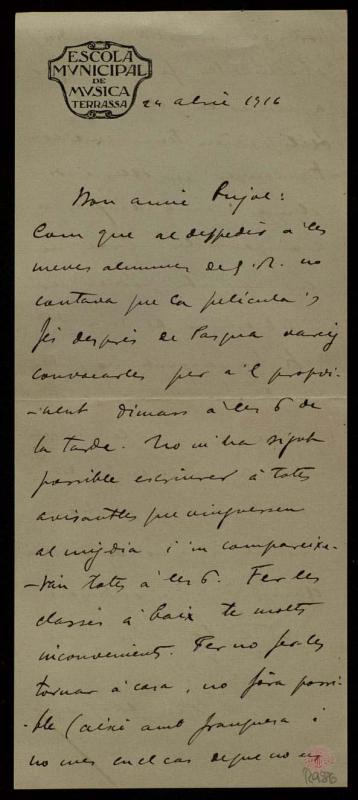 ESCOLA
MVNICIPAL
DE
MVSICA
TERRASSA
24 abril 1916
Bon amic Pujol:
Com que al despedir à les
meves alumnes de g. R. no
contava que la película 's
fés després de Pasqua vareig
convocarles per a 'l propvi-
-nent dimars à les 6 de
la tarde. No m'ha sigut
possible escriurer à totes
avisantles que vinguessen
al mitjdia i 'm compareixe-
-ràn totes à les 6. Fer les
classes à baix te molts
inconvenients. Fer no fer les
tornar à casa, no fóra possi-
-ble (aixó amb franquesa i
no mes en el cas de que no us
R986